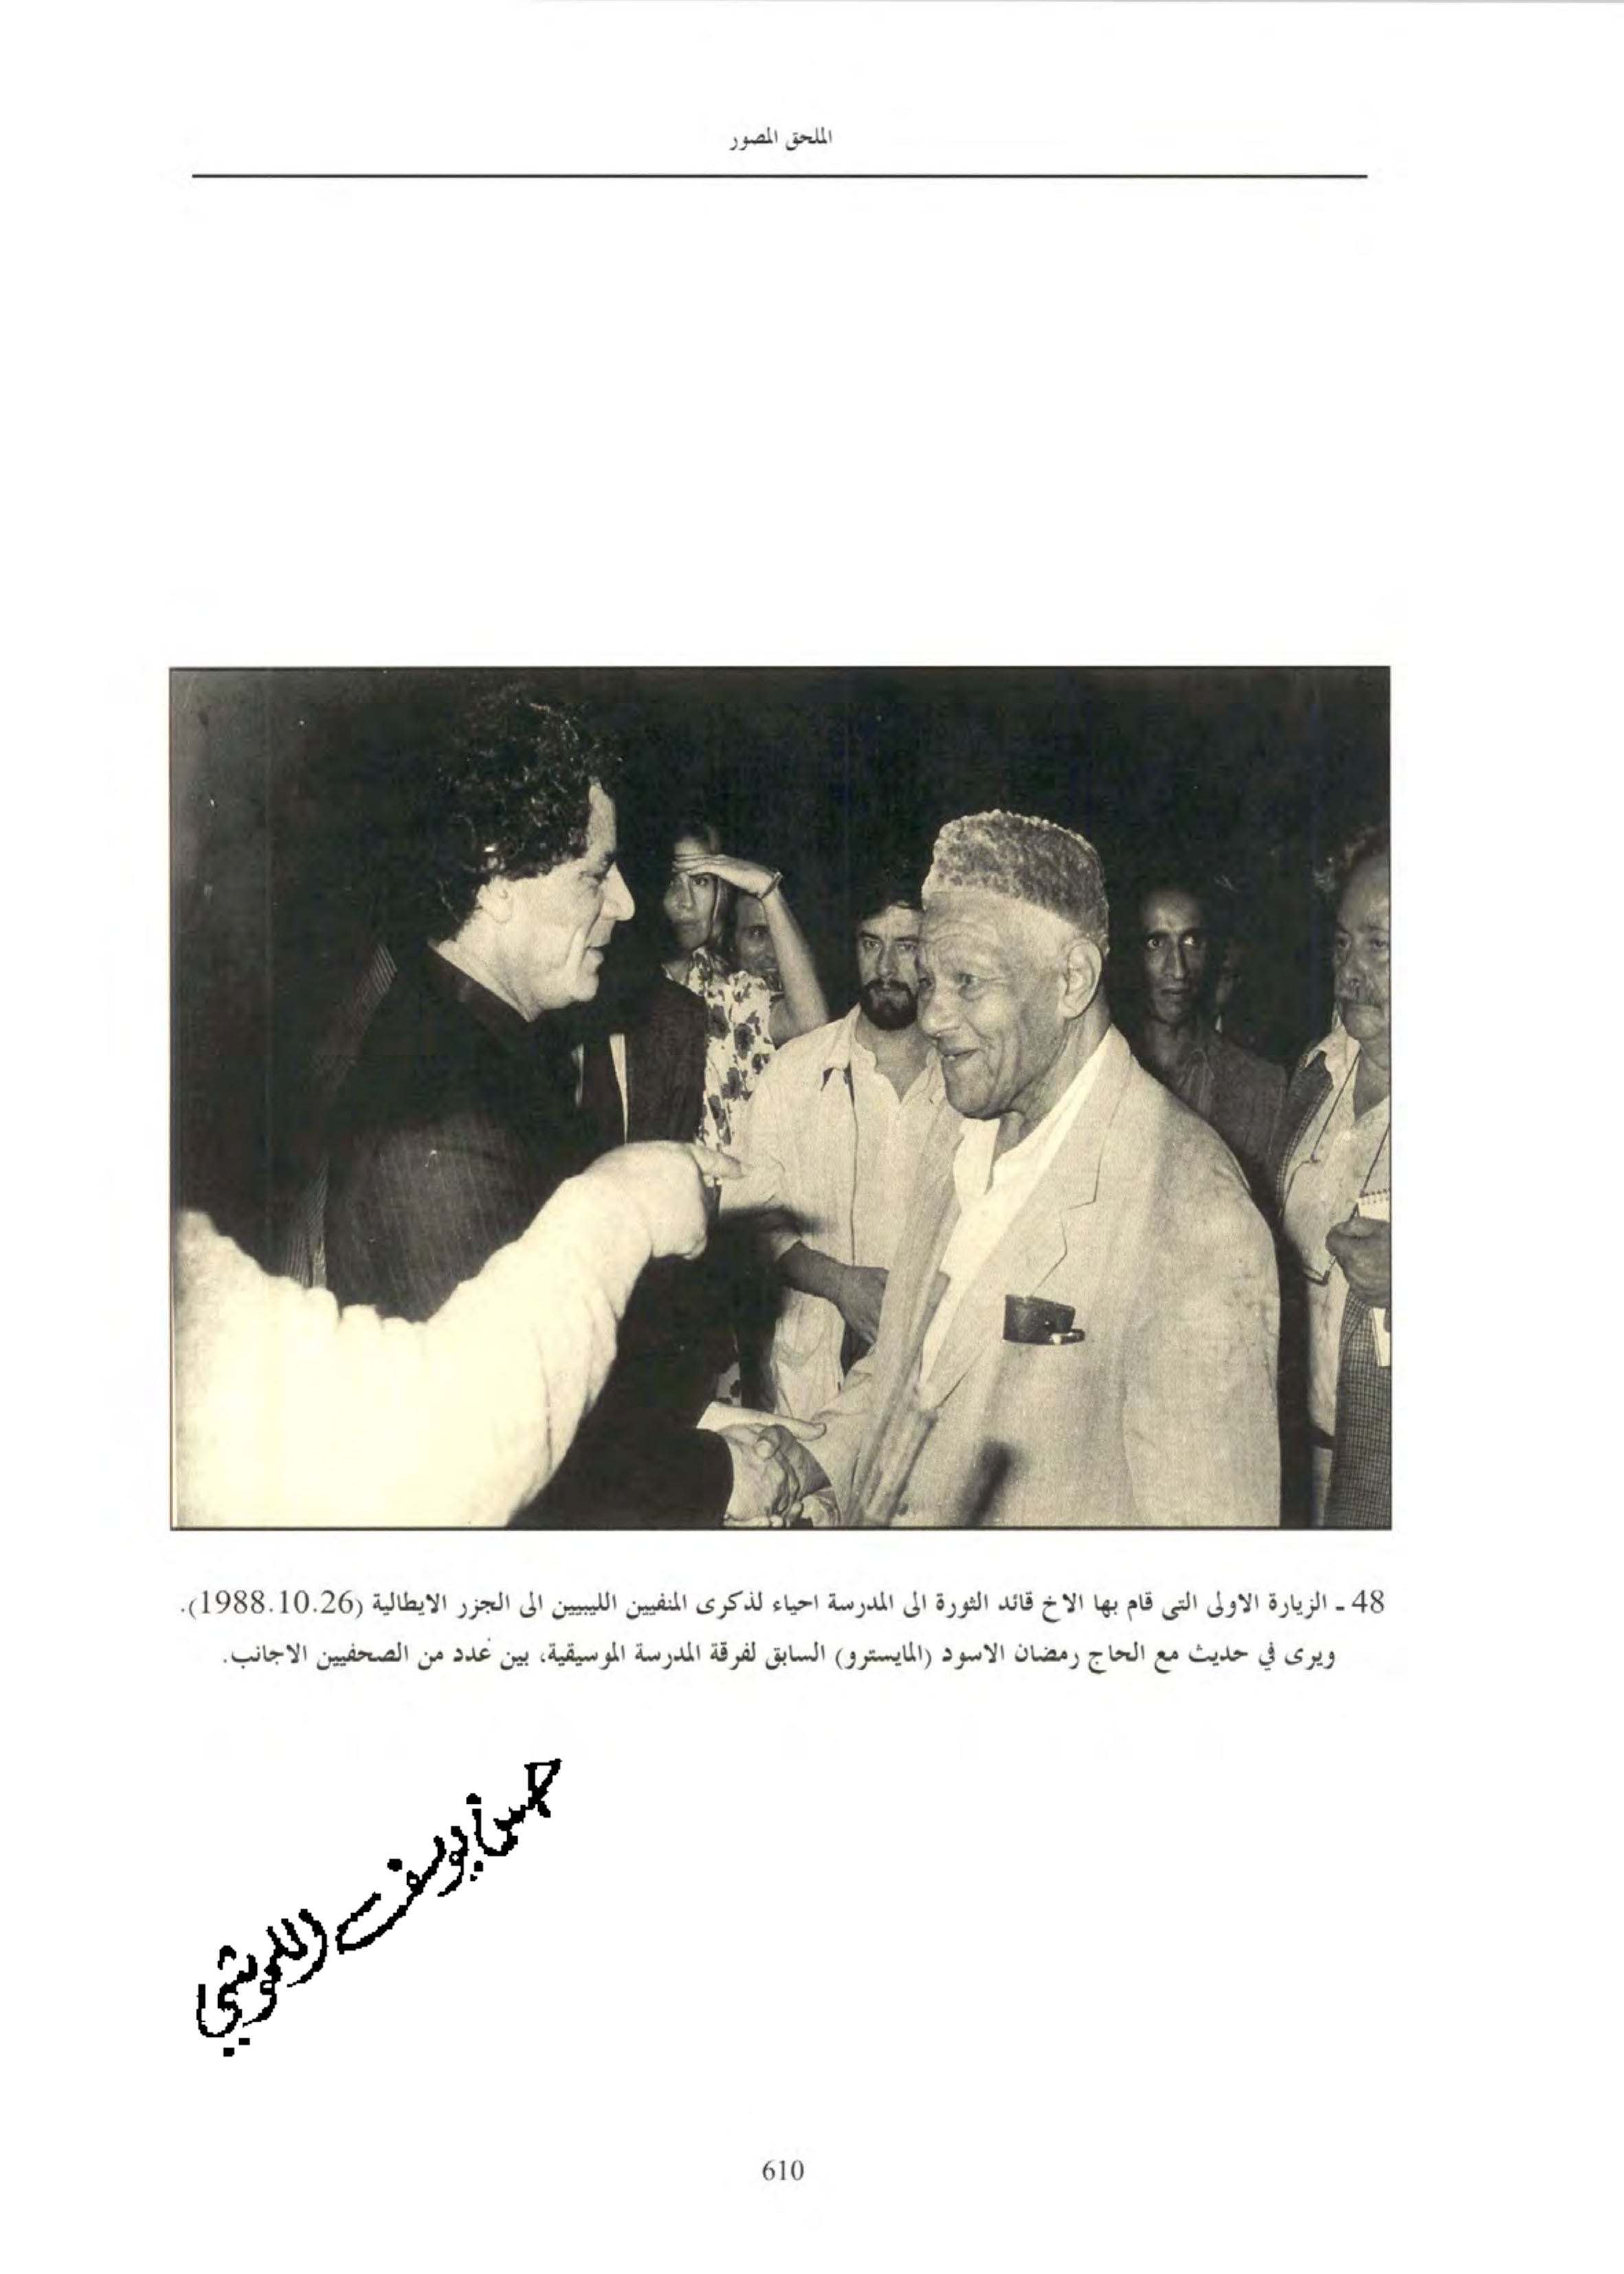 الملحق المصور
48 ـ الزيارة الاولى التى قام بها الاخ قائد الثورة الى المدرسة احياء لذكرى المنفيين الليبيين الى الجزر الايطالية (1988.10.26).
ويرى في حديث مع الحاج رمضان الاسود (المايسترو) السابق لفرقة المدرسة الموسيقية، بين عدد من الصحفيين الاجانب.
يوسف
610